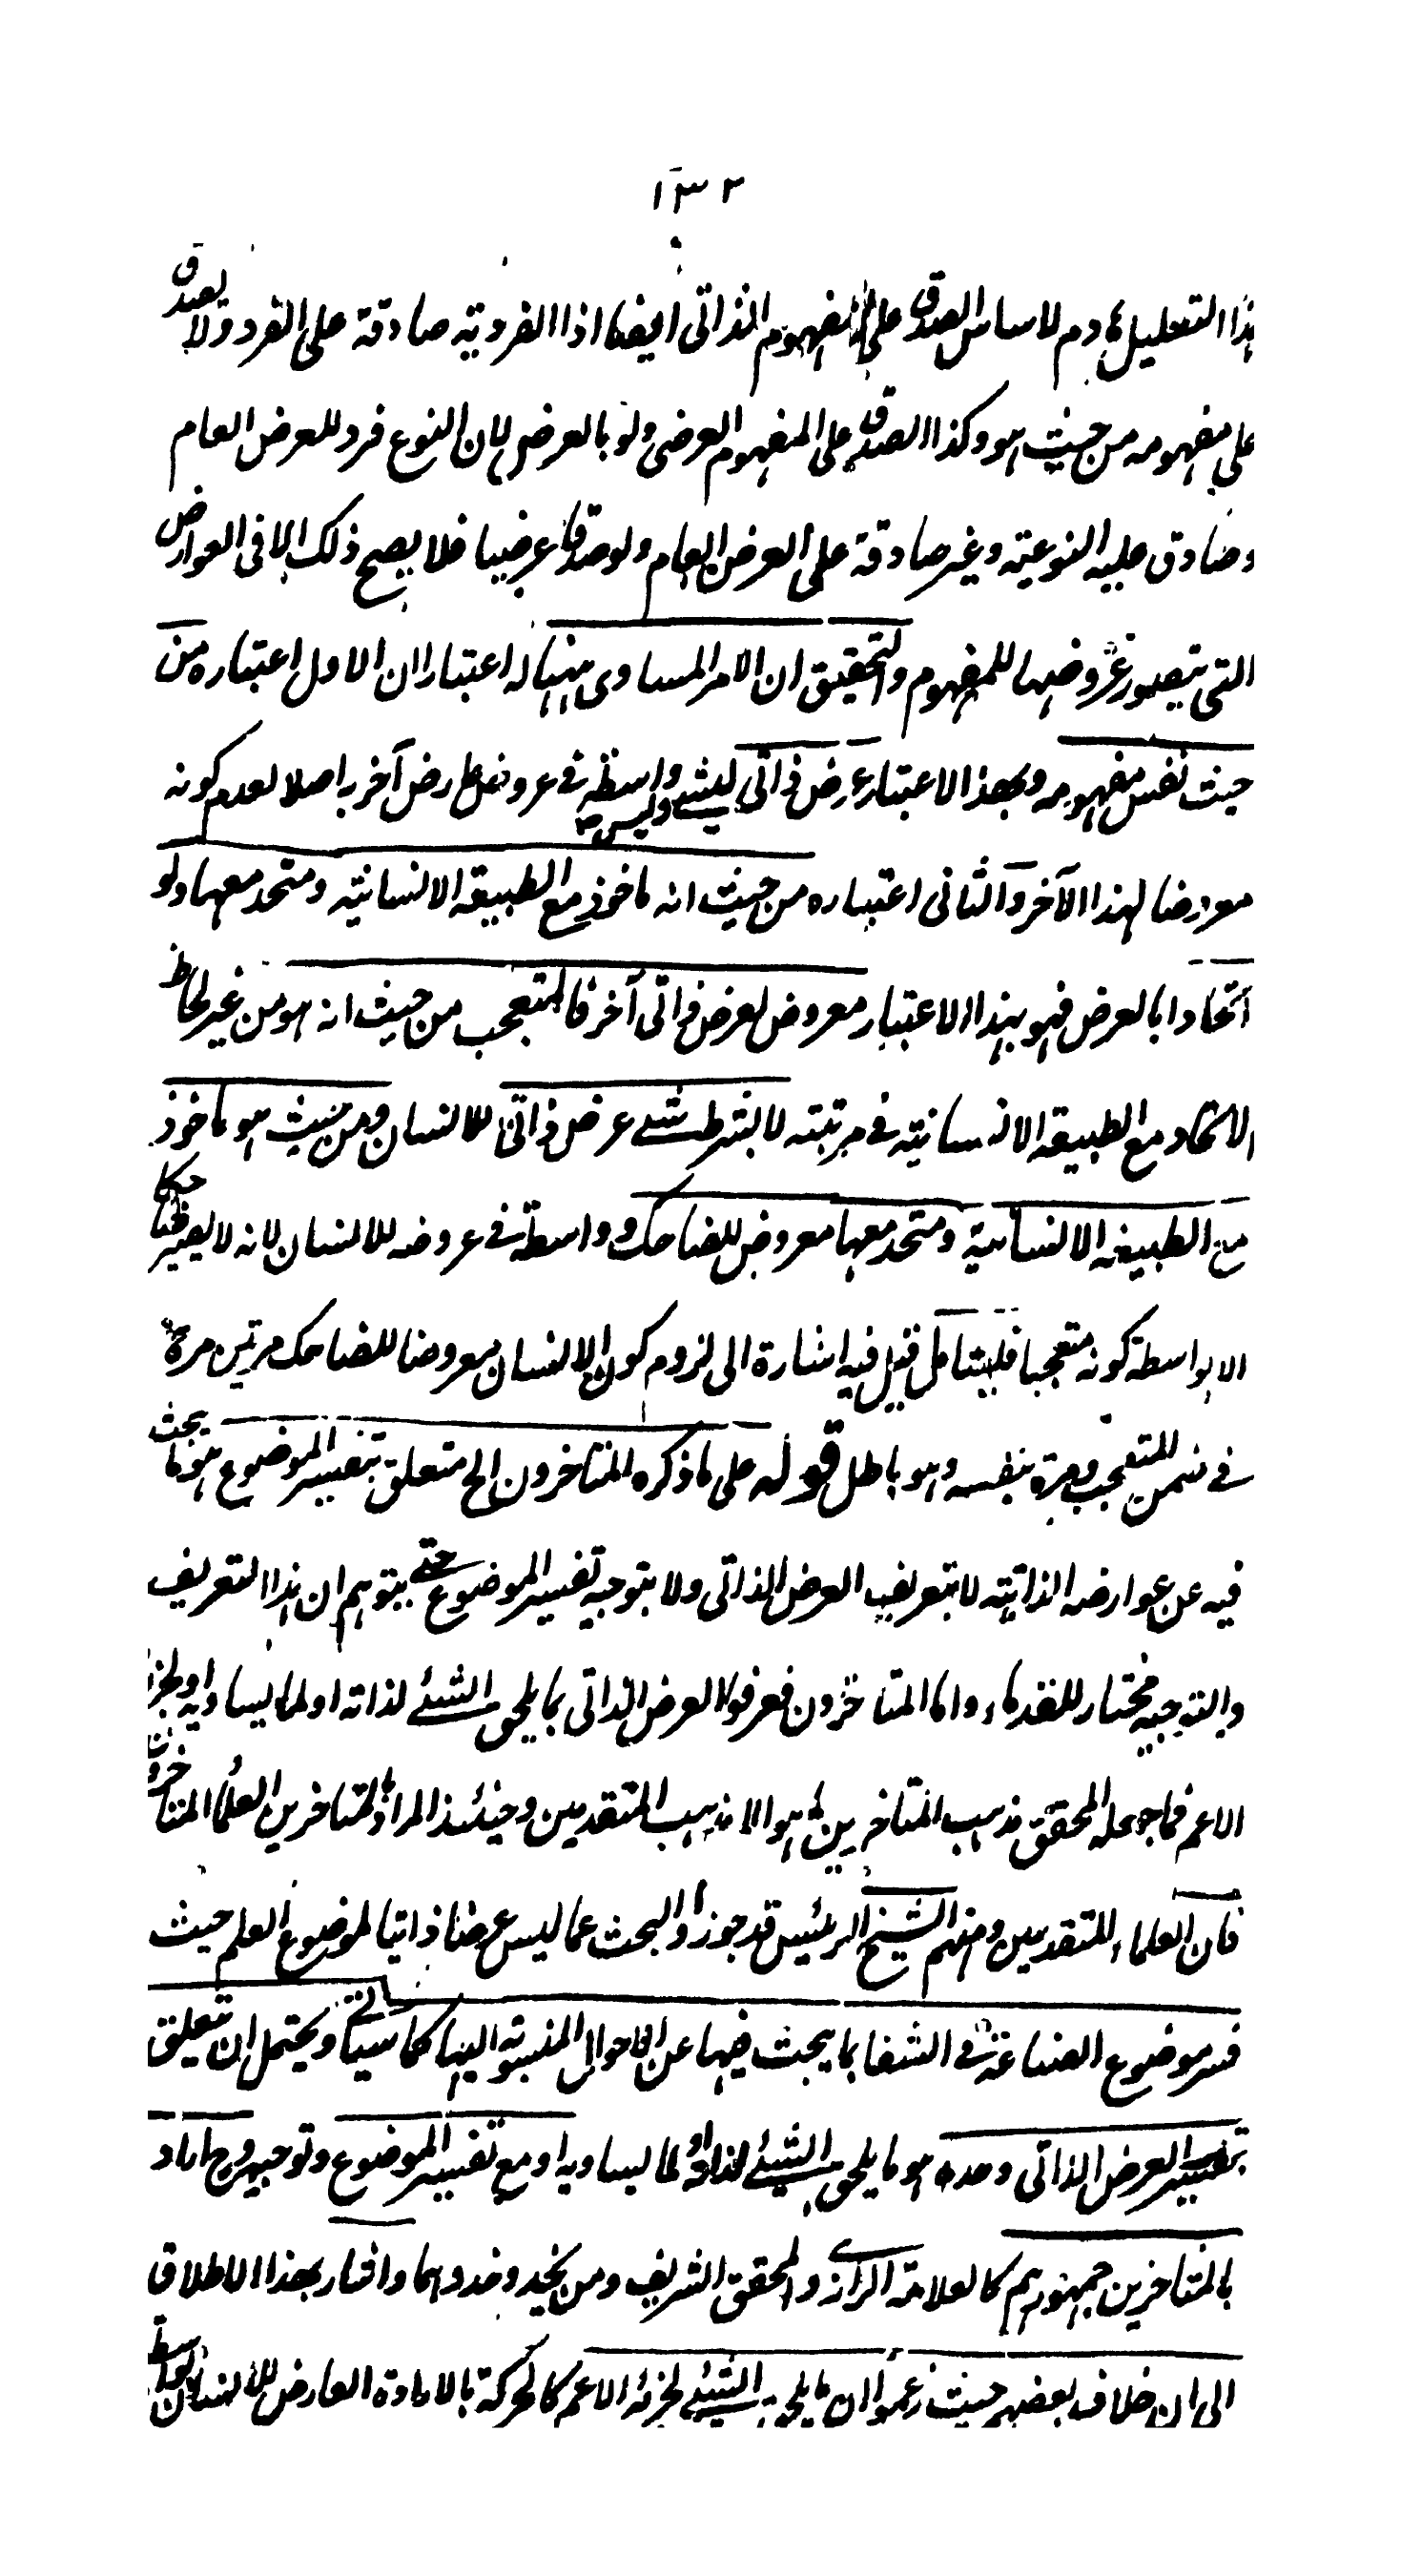 ١٣٢
هذا التعليل هادم لاساس الصدق على المفهوم الذاتى ايضا اذ الفردية صادقة على الفرد ولا تصدق
على مفهومه من حيث هو وكذا الصدق على المفهوم العرضى ولو بالعرض لان النوع فرد للعرض العام
وصادق عليه النوعية وغير صادقة على العرض العام ولو صدقا عرضيا فلا يصح ذلك الا فى العوارض
التى يتصور عروضها للمفهوم والتحقيق ان الامر المساوى ههنا له اعتباران الاول اعتباره من
حيث نفس مفهومه وبهذا الاعتبار عرض ذاتى لشئ وليس واسطة فى عروض عارض آخر به اصلا لعدم كونه
معروضا لهذا الآخر والثانى اعتباره من حيث انه ماخوذ مع الطبيعة الانسانية ومتحد معها ولو
اتحادا بالعرض فهو بهذا الاعتبار معروض لعرض ذاتى آخر فالمتعجب من حيث انه هو من غير لحاظ
الاتحاد مع الطبيعة الانسانية فى مرتبة لا بشرط شئ عرض ذاتى للانسان ومن حيث هو ماخوذ
مع الطبيعة الانسانية ومتحد معها معروض للضاحك وواسطة فى عروضه للانسان لانه لا يصير ضاحكا
الا بواسطة كونه متعجبا فليتامل قيل فيه اشارة الى لزوم كون الانسان معروضا للضاحك مرتين مرة
فى ضمن المتعجب ومرة بنفسه وهو باطل قوله على ما ذكره المتاخرون الخ متعلق بتفسير الموضوع هو ما يبحث
فيه عن عوارضه الذاتية لا بتعريف العرض الذاتى ولا بتوجيه تفسير الموضوع حتى يتوهم ان هذا التعريف
والتوجيه مختار للقدماء واما المتاخرون فعرفوا العرض الذاتى بما يلحق الشئ لذاته او لما يساويه او لجزئه
الاعم فما جعله المحقق مذهب المتاخرين ما هو الا مذهب المتقدمين وحينئذ المراد بالمتاخرين العلماء المتاخرون
فان العلماء المتقدمين ومنهم الشيخ الرئيس قد جوزوا البحث عما ليس عرضا ذاتيا لموضوع العلم حيث
فسر موضوع الصناعة فى الشفا بما يبحث فيها عن الاحوال المنسوبة اليها كما سيأتى ويحتمل ان تعليق
بتفسير العرض الذاتى وحده هو ما يلحق الشئ لذاته او لما يساويه او مع تفسير الموضوع وتوجيهه وح اراد
بالمتاخرين جمهورهم كالعلامة الرازى والمحقق الشريف ومن يحذو حذوهما واشار بهذا الاطلاق
الى ان خلاف بعضهم حيث زعموا ان ما يلحق الشئ لجزئه الاعم كالحركة بالارادة العارض للانسان بواسطة